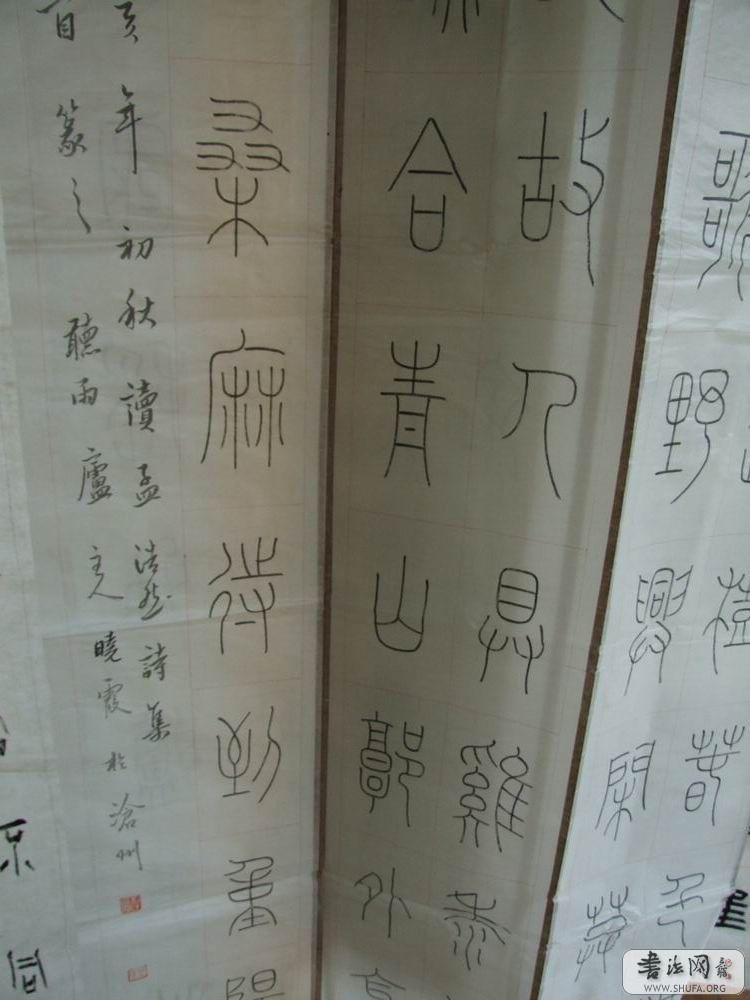 春
歌野興閑
故人具雞黍
合青山郭外
桑麻待到重陽
年初秋讀孟浩然詩集
首篆之 聽雨廬主人曉霞於滄州
書法网
WWW.SHUFA.ORG